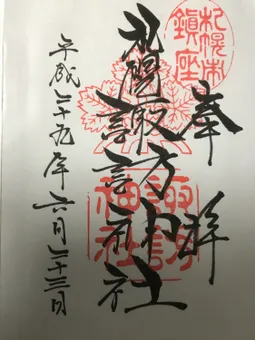 奉拝
札幌市
鎮座
札幌諏訪神社
諏訪
神社
平成二十九年六月二十三日